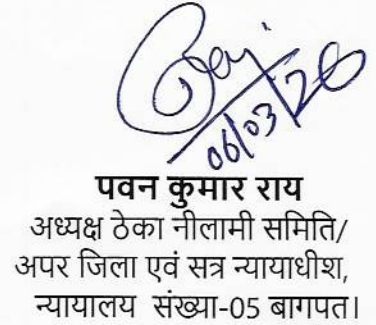 06/03/26
पवन कुमार राय
अध्यक्ष ठेका नीलामी समिति/
अपर जिला एवं सत्र न्यायाधीश,
न्यायालय संख्या-05 बागपत।